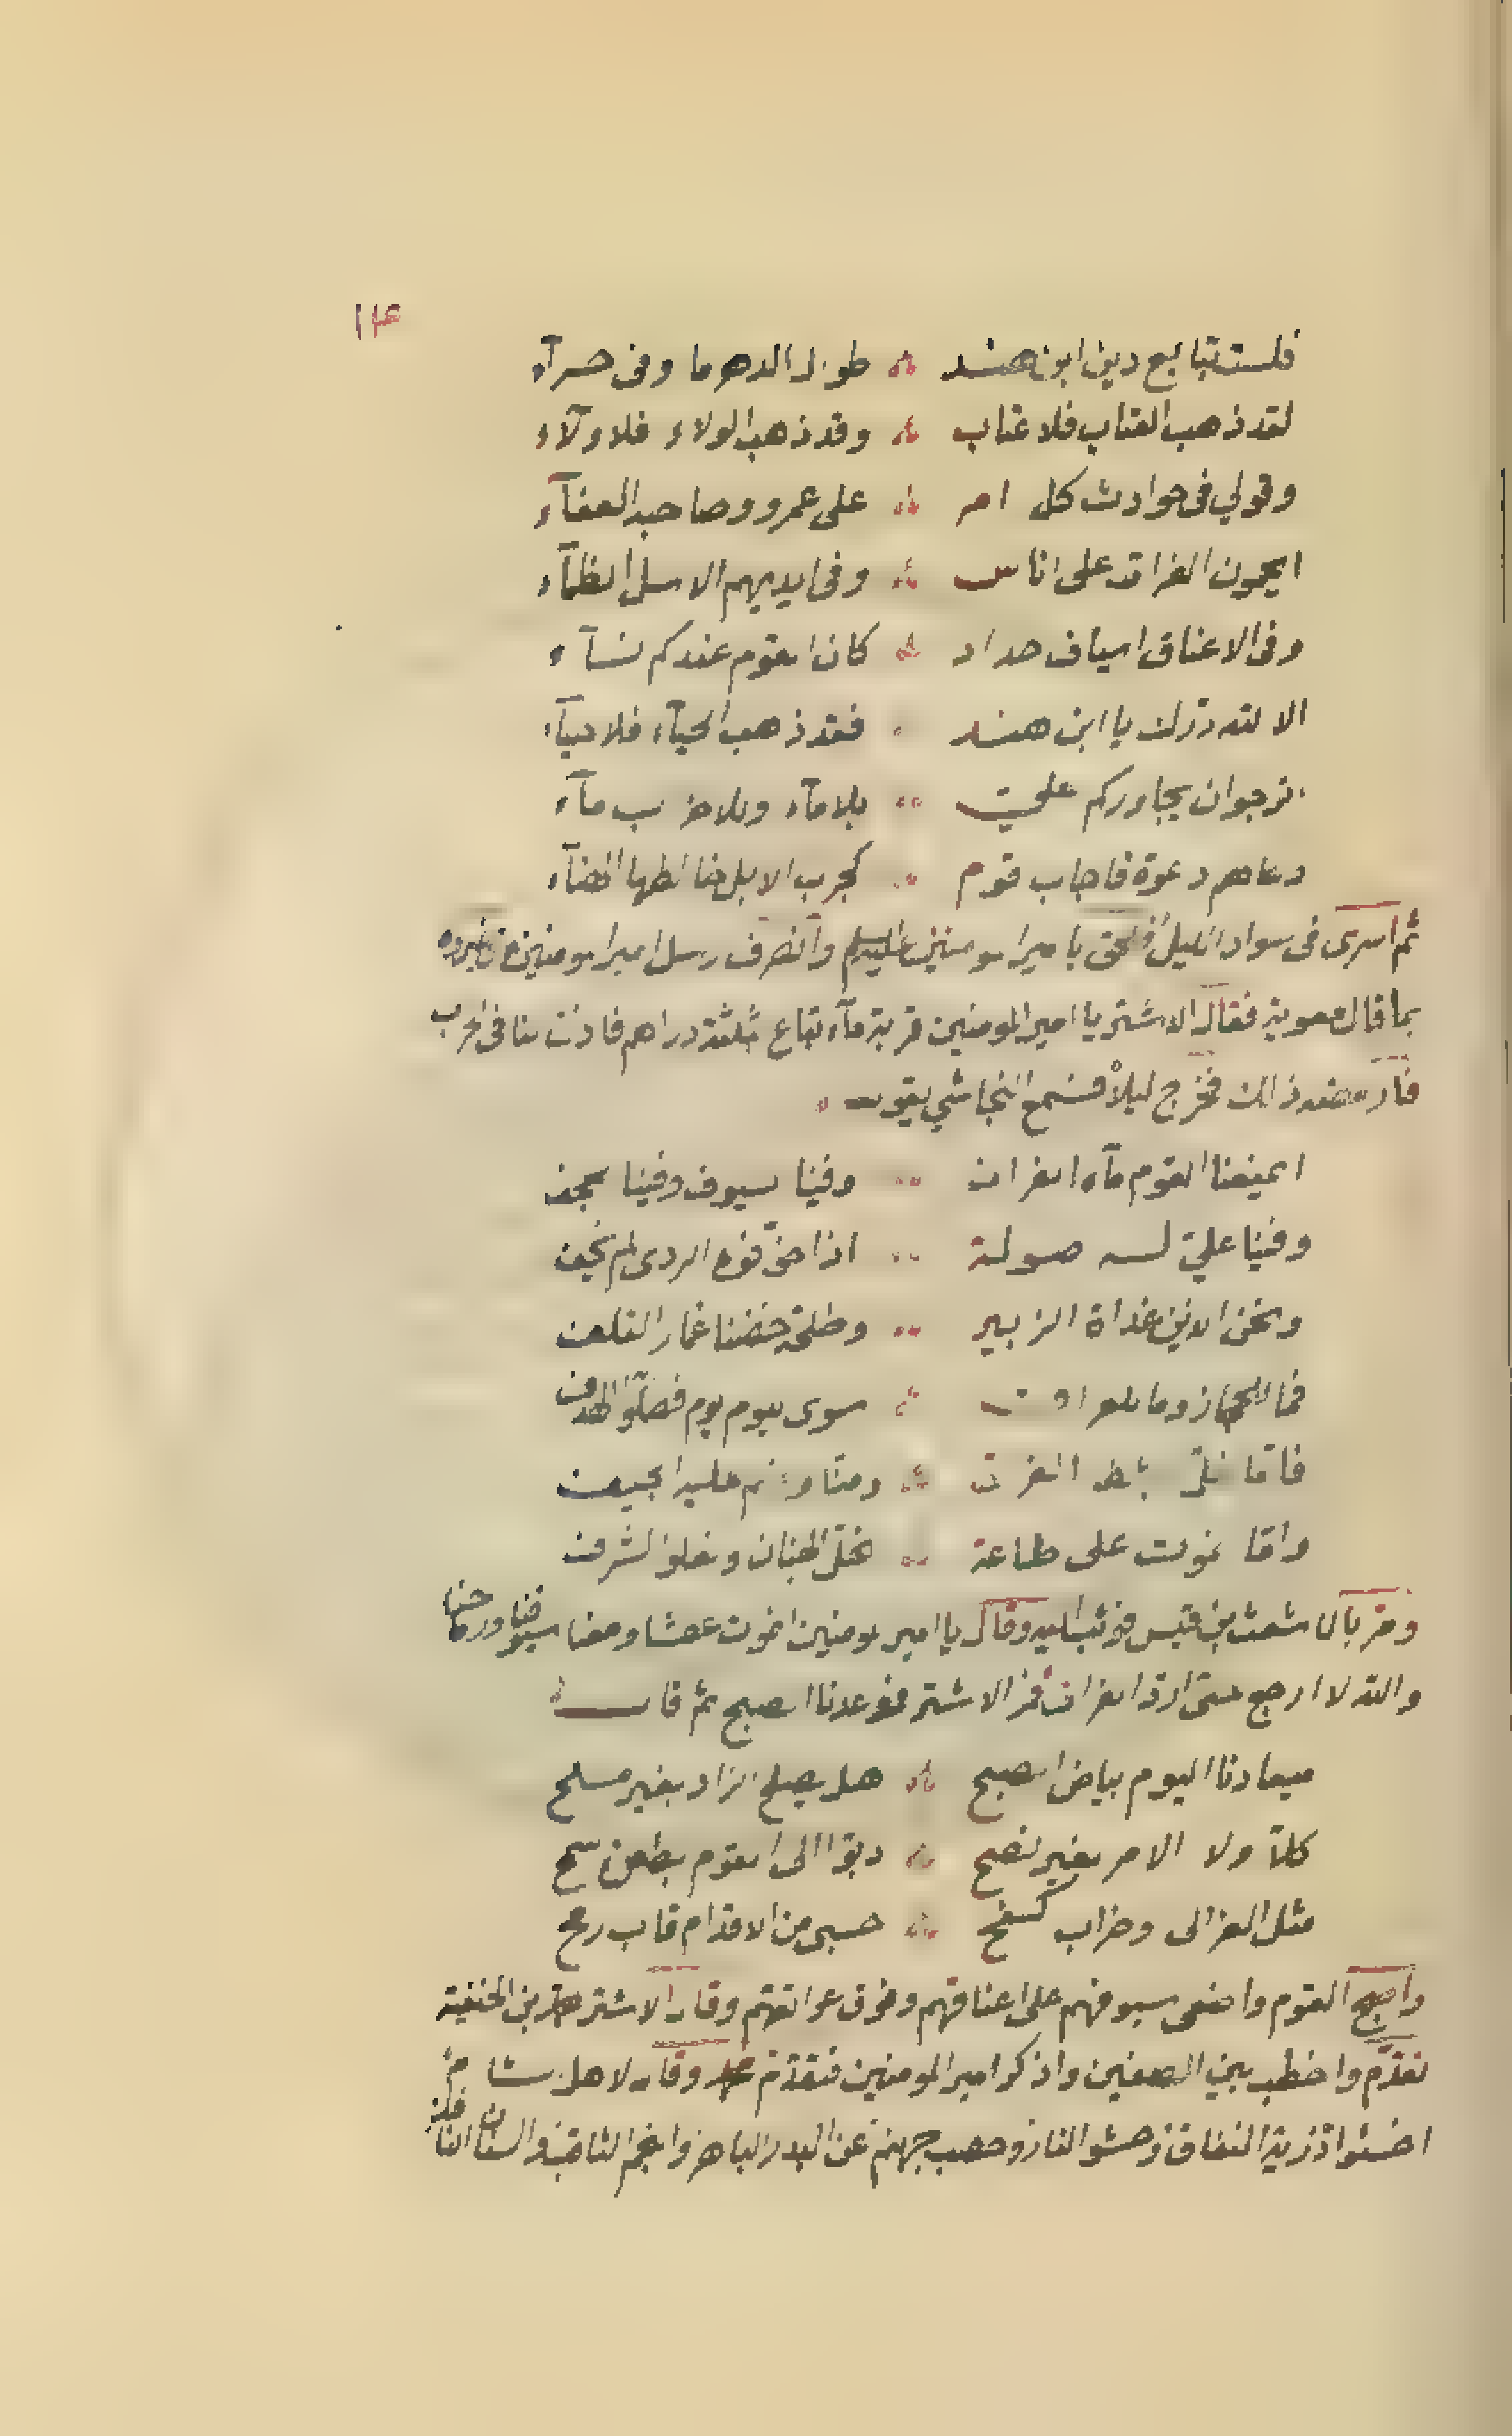 ١١٤
فلست بتابع دين ابن هند طوال الدهر ما وفى حسرآء
لقد ذهب العتاب فلا عتاب وقد ذهب الولاء فلا ولآء
وقولي في حوادث كل امر على عمرو وصاحبه العفآء
ايحمون الفرات على اناس وفي ايديهم الاسل الظمآء
وفي الاعناق اسياف حداد كان القوم عندكم نسآء
الا لله درك يا ابن هند فقد ذهب الحيآء فلا حيآء
اترجوان يجاوركم علي بلا مآء وللاحزاب مآء
دعاهم دعوة فاجاب قوم كجرب الابل خالطها الهنآء
ثم اسرى في سواد الليل فلحق با مير المومنين عليه السلام وانصرف رسل امير المومنين
بما قال معوية فقال الاشتر يا امير المومنين قربة مآء تباع بثلثة دراهم فاذن لنا في الحرب
ذلك فخرج ليلا فسمع النجاشي يقول
ايمنعنا القوم مآء الفرات وفينا سيوف وفينا حجف
وفينا علي له صولة اذا خوفوه الردى لم يخف
ونحن الذين غداة الزبير وطلحة خضنا غمار التلف
فما للحجاز وما للعراق سوى اليوم يوم فصلوا الهدف
فاما نحل بشط الفرات ومنا ومنهم عليه الجيف
واما نموت على طاعة نحل الجنان ونعلو الشرف
ومر بالاشعث بن قيس فوثب اليه وقال يا امير المومنين انموت عطشا ومعنا سيوفنا ورماحنا
والله لا ارجع حتى ارد الفرات فمر الاشتر فوعدنا الصبح ثم قال
ميعادنا اليوم بياض الصبح هل يصلح الزاد بغير ملح
كلا ولا الامر بغير نصح دبوا الى القوم بطعن سمح
مثل العزالى وضراب كفح حسبي من الاقدام قاب رمح
واصبح القوم واضعي سيوفهم على اعناقهم وفوق عواتقهم وقال الاشتر لمحمد بن الحنفية
تقدم واخطب بين الصفين واذكر امير المومنين فتقدم محمد وقال لاهل الشام
اخسئوا ذرية النفاق وحشو النار وحصب جهنم عن البدر الباهر والنجم الثاقب والسنان النافذ